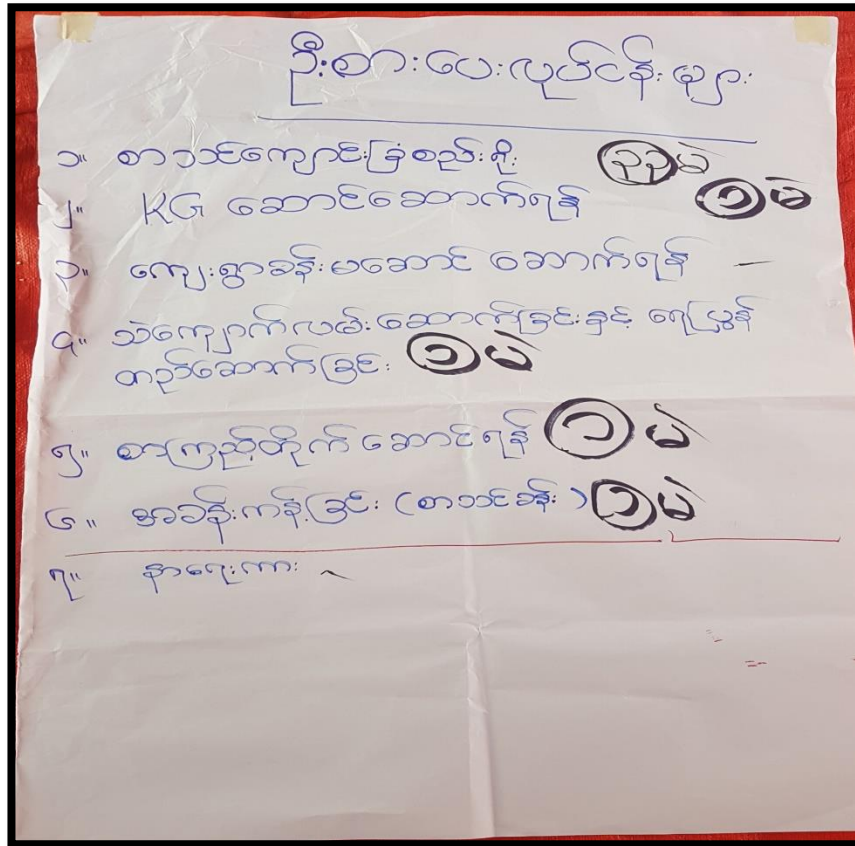 ဦးစားပေးလုပ်ငန်းများ
၁။ စာသင်ကျောင်းခြံစည်းရိုး ၃၃မဲ
၂။ KG ဆောင်ဆောက်ရန် ၁မဲ
၃။ ကျေးရွာခန်းမဆောင် ဆောက်ရန် –
၄။ သဲကျောက်လမ်းဆောက်ခြင်းနှင့် ရေပြွန်
တည်ဆောက်ခြင်း ၁မဲ
၅။ စာကြည့်တိုက် ဆောင်ရန် ၁ မဲ
၆။ အခန်းကန့်ခြင်း (စာသင်ခန်း) ၁မဲ
၇။ နာရေးကား